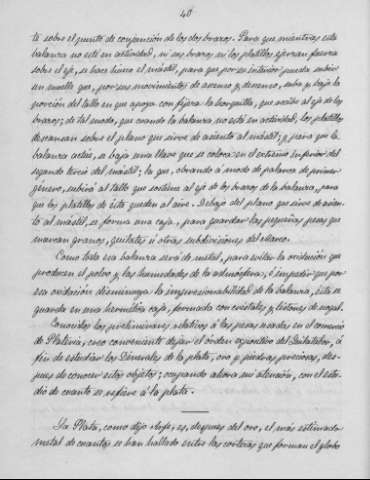 40
te sobre el punto de conjunción de los dos brazos. Para que mientras esta
balanza no esté en actividad, ni sus brazos ni los platillos ejerzan fuerza
sobre el eje, se hace hueco el mástil, para que por su interior pueda subir
un muelle que, por sus movimientos de ascenso y descenso, suba y baje la
porción del tallo en que apoya con fijeza la horquilla, que recibe al eje de los
brazos; de tal modo, que cuando la balanza no está en actividad, los platillos
descansan sobre el plano que sirve de asiento al mástil; y para que la
balanza actúe, se baja una llave que se coloca en el extremo inferior del
segundo tercio del mástil; la que, obrando á modo de palanca de primer
género, subirá al tallo que sostiene al eje de los brazos de la balanza, para
que los platillos de ésta queden al aire. Debajo del plano que sirve de asien-
to al mástil, se forma una caja, para guardar las pequeñas pesas que
marcan granos, quilates ú otras subdivisiones del Marco.
Como toda esa balanza será de metal, para evitar la oxidación que
producen el polvo y las humedades de la atmósfera, é impedir que por
esa oxidación disminuya la impresionabilidad de la balanza, ésta se
guarda en una hermética caja, formada con cristales y listones de nogal.
Conocidos los preliminares relativos á las pesas usadas en el comercio
de Platería, creo conveniente dejar el orden expositivo del Quilatador, á
fin de estudiar los Dinerales de la plata, oro y piedras preciosas, des-
pues de conocer estos objetos; ocupando ahora mi atención, con el estu-
dio de cuanto se refiere á la plata.
La Plata, como dijo Arfe, es, despues del oro, el más estimado
metal de cuantos se han hallado entre las cortezas que forman el globo